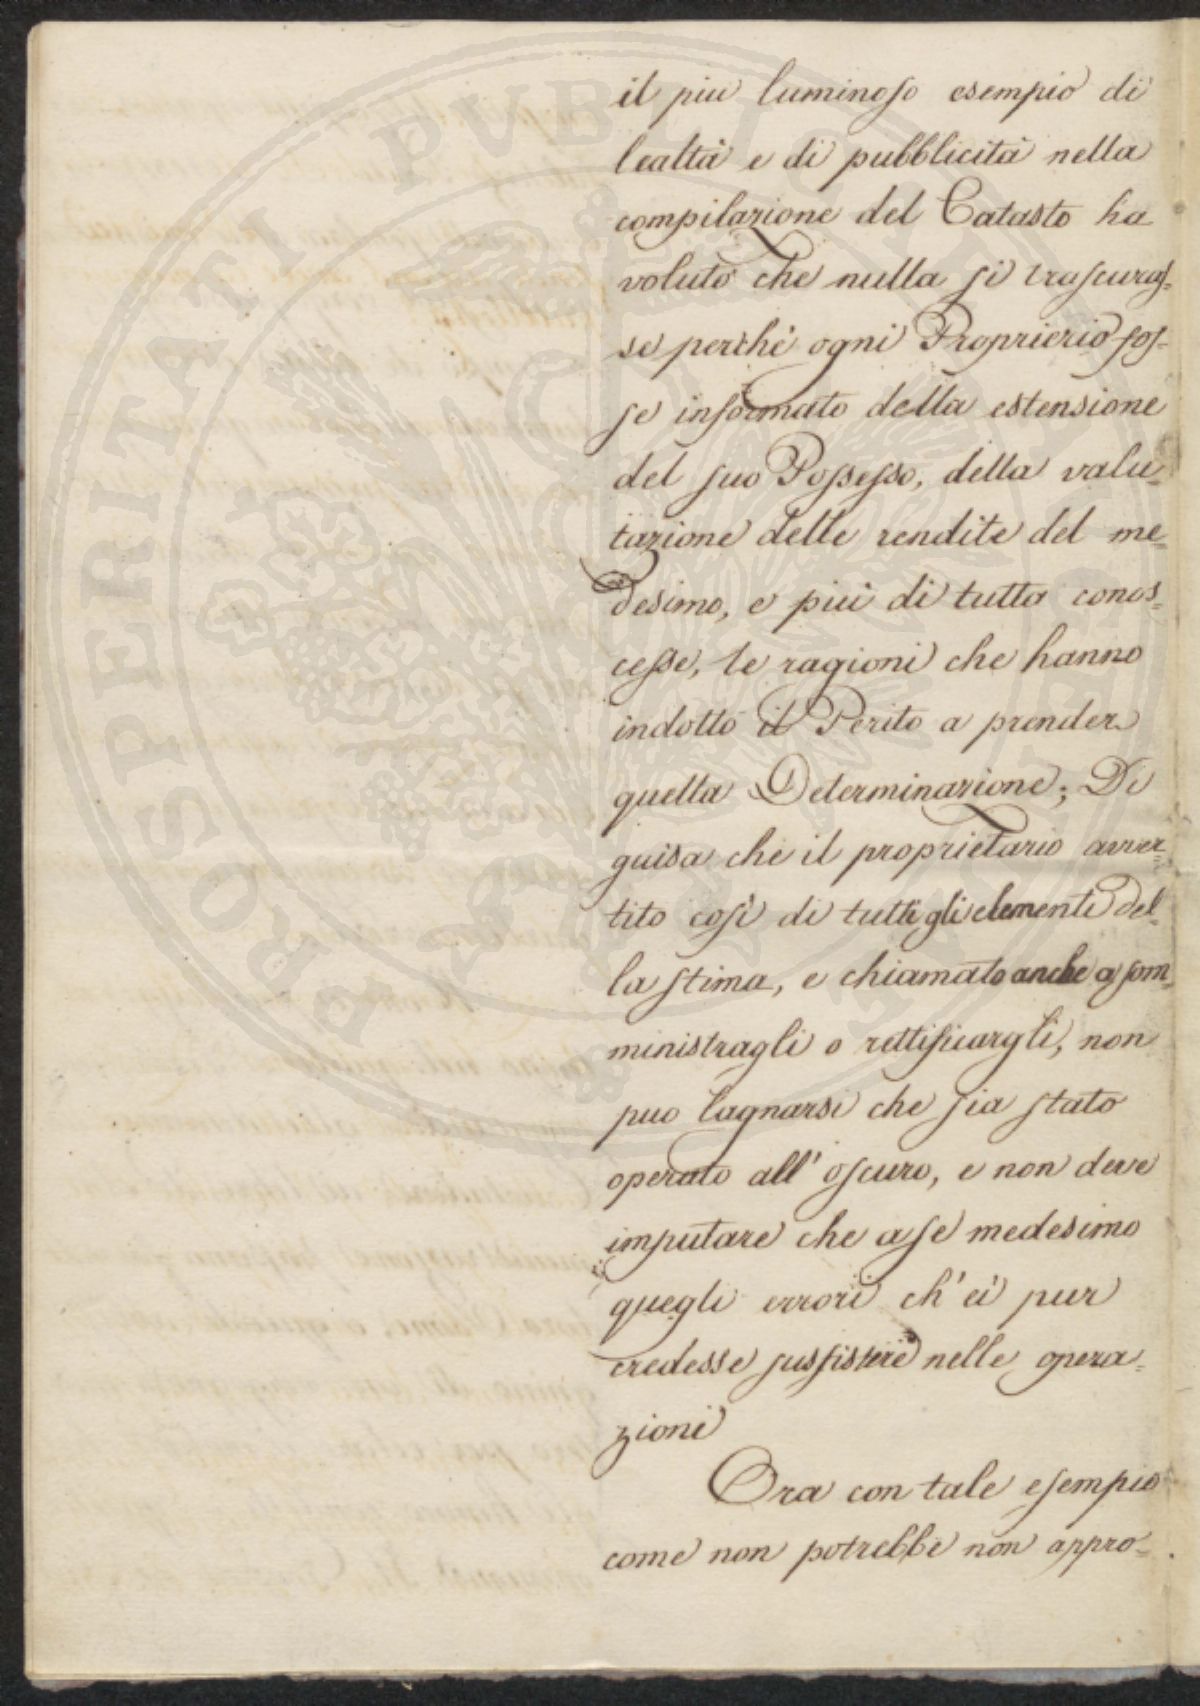 il piu luminoso esempio di
lealtà e di pubblicità nella
compilazione del Catasto ha
voluto che nulla si trascuras-
se perchè ogni Proprierio fos-
se informato della estensione
del suo Possesso, della valu-
tazione delle rendite del me-
desimo, e più di tutto conos-
cesse, le ragioni che hanno
indotto il Perito a prender
quella Determinazione; Di
guisa che il proprietario avver-
tito così di tutti gli elementi del-
la stima, e chiamato anche a som-
ministragli o rettificargli, non
puo lagnarsi che sia stato
operato all' oscuro, e non deve
imputare che a se medesimo
quegli errori ch' ei pur
credesse sussistere nelle opera-
zioni
Ora con tale esempio
come non potrebbe non appro-
PROSPERITATI PUBLICAE